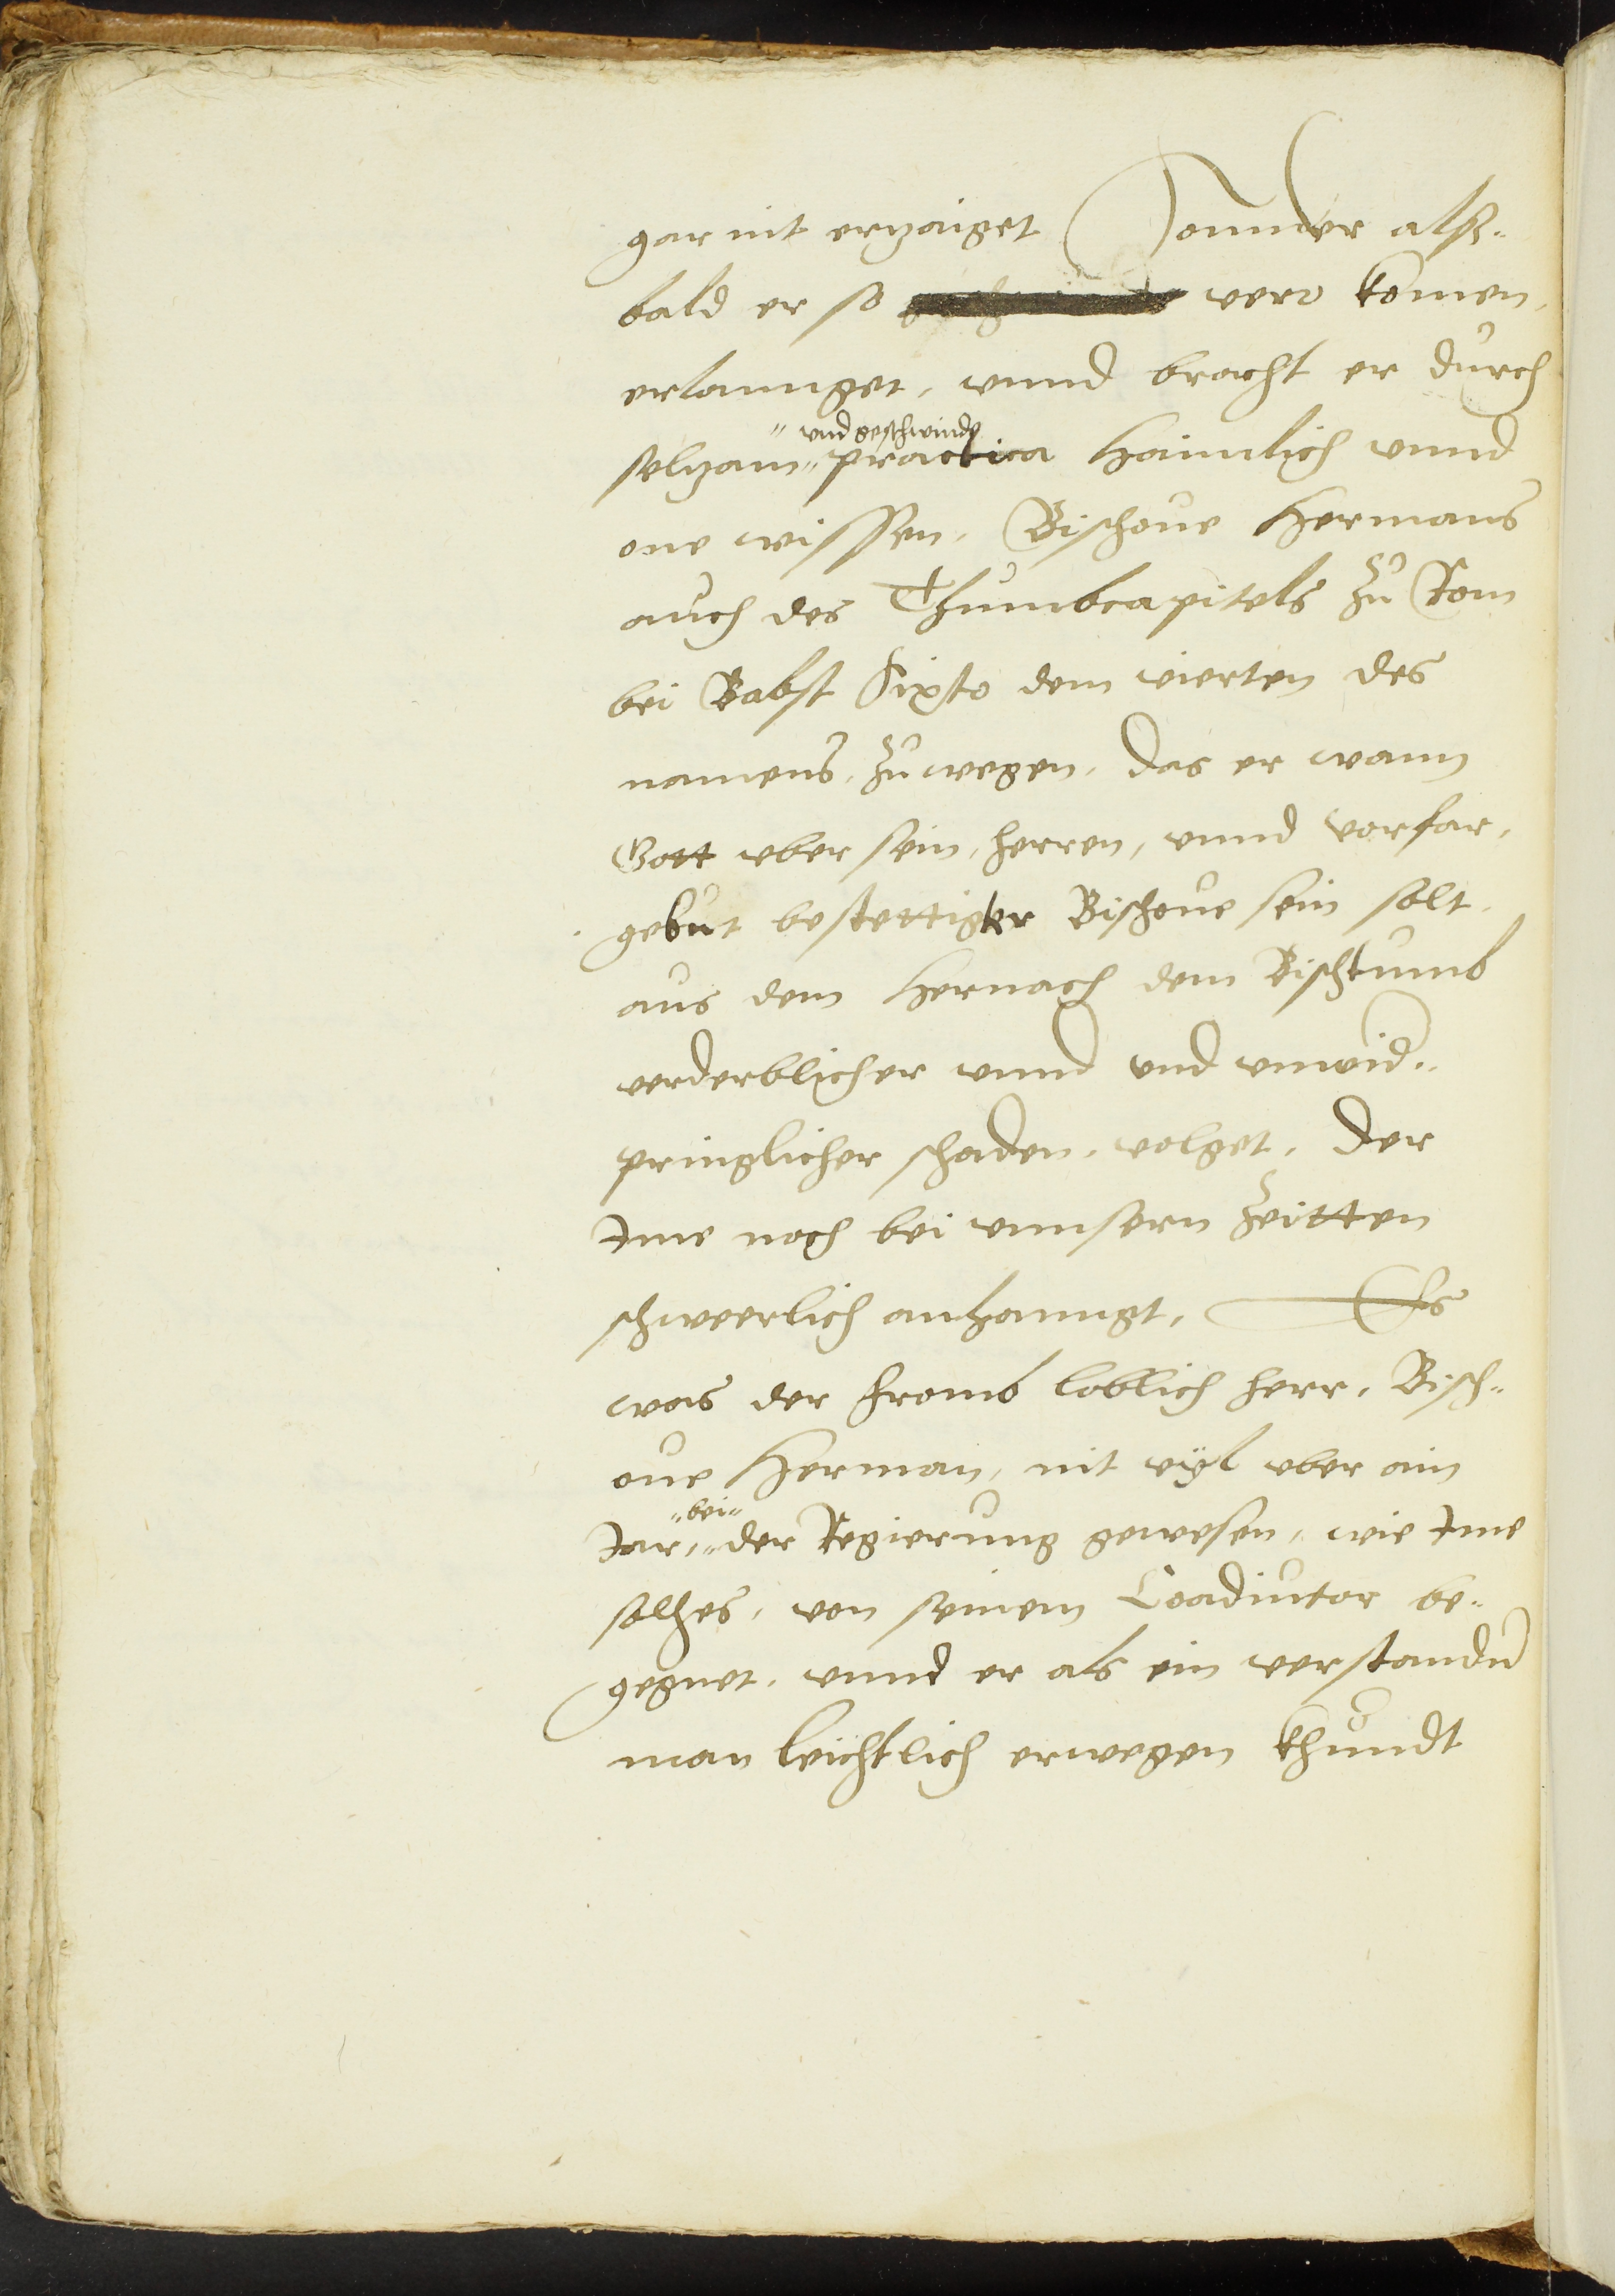 gar nit erzaiget Sonnder alß-
bald er so verr komen,
erlannget, unnd bracht er durch
und geschwinde
selzam practica haimlich unnd
one wissen, Bischoue Hermans
auch des Thumbcapitels zu Rom
bei Babst Sixto dem vierten des
namens, zu wegen, das er wann
Gott uber sein, herren, unnd vorfar,
gebut bestettigter Bischoue sein solt,
aus dem hernach dem Bischtumb
verderblicher unnd und unwid-
pringlicher schaden, volget, der
Ime noch bei unnsern Zeitten
schweerlich anhanngt, Es
was der fromb loblich herr, Bisch-
oue Herman, nit vyl uber ain
bei
Jar, der Regierung gewesen, wie Ime
solhes, von seinem Coadiutor be-
gegnet, unnd er als ein verstandn
man leichtlich erwegen khundt